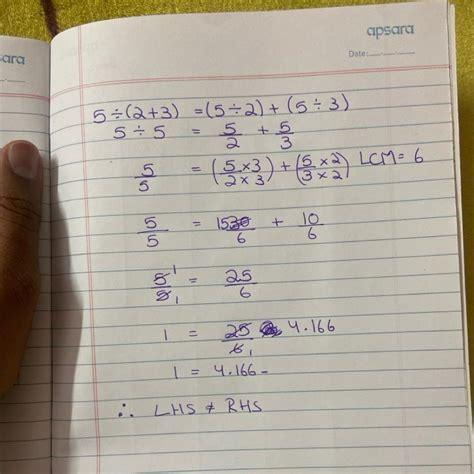 ara
apsara
Date:
5 ÷ (2+3) = (5 ÷ 2) + (5 ÷ 3)
5 ÷ 5 = 5/2 + 5/3
5/5 = (5 × 3 / 2 × 3) + (5 × 2 / 3 × 2) LCM = 6
5/5 = 15/6 + 10/6
5/5 1 1 = 25/6
1 = 25/6 1 4.166
1 = 4.166-
∴ LHS ≠ RHS